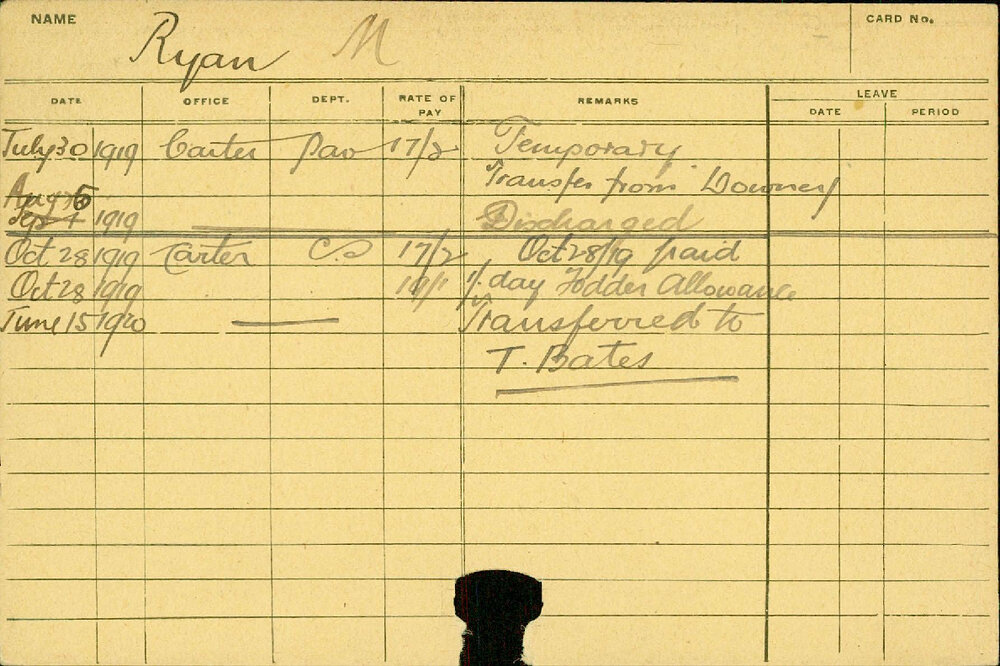 NAME Ryan M CARD No.
DATE OFFICE DEPT. RATE OF PAY REMARKS LEAVE
DATE PERIOD
July 30 1919 Carter Pav 17/2 Temporary
Transfer from Downey
Aug 5
Sept 1 1919 Discharged
Oct 28 1919 Carter C.D 17/2 Oct 28/19 paid
Oct 28 1919 19/1 1/ day Fodder Allowance
June 15 1920 Transferred to
T. Bates